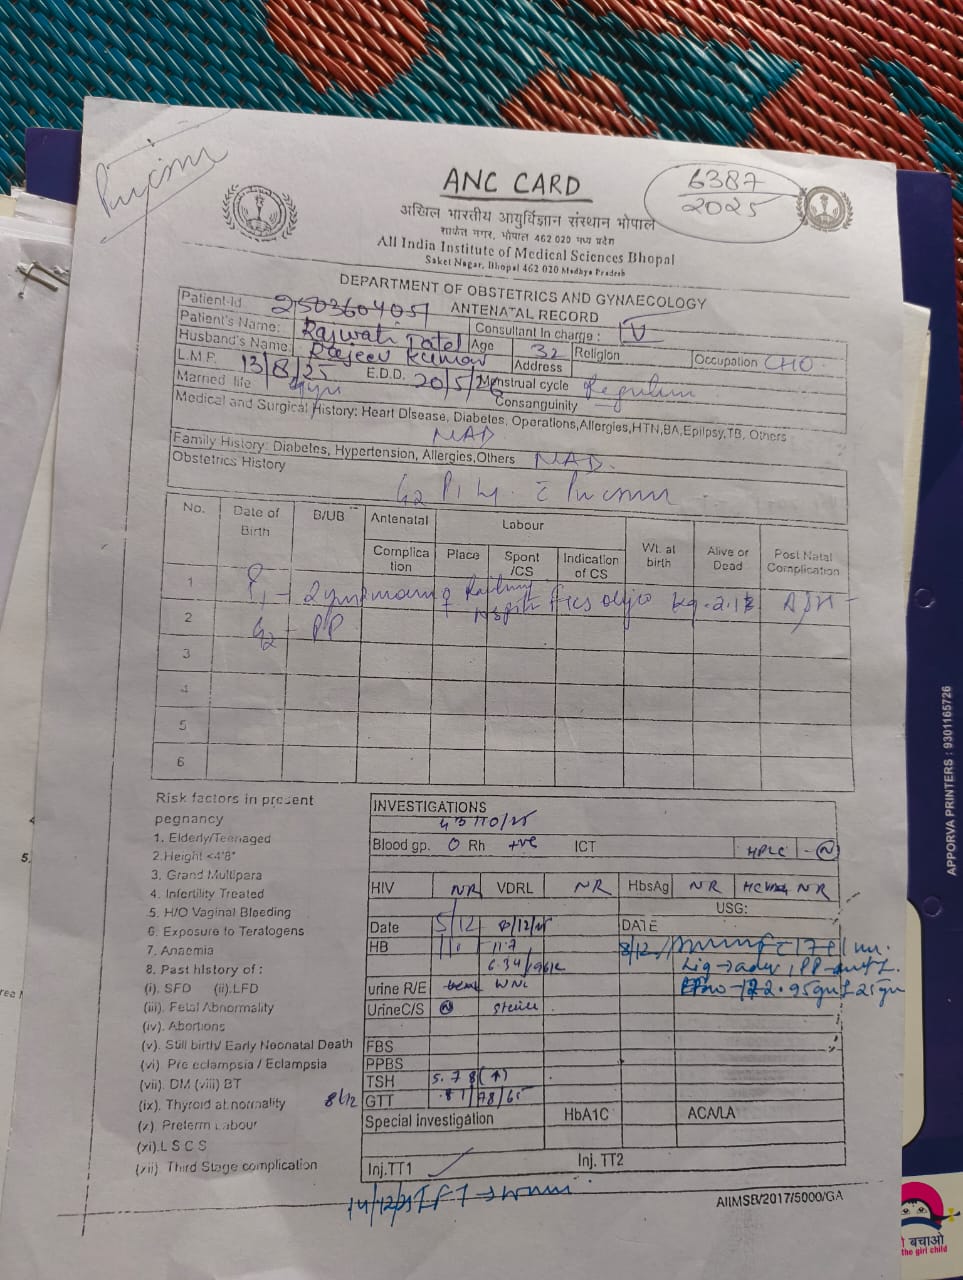 ANC CARD
6387
2025
अखिल भारतीय आयुर्विज्ञान संस्थान भोपाल
साकेत नगर, भोपाल 462 020 मध्य प्रदेश
All India Institute of Medical Sciences Bhopal
Saket Nagar, Bhopal 462 020 Madhya Pradesh
DEPARTMENT OF OBSTETRICS AND GYNAECOLOGY
ANTENATAL RECORD
Patient-Id 2503604051
Consultant In charge : IV
Patient's Name: Rajwati Patel Age 32 Religion Occupation CHO
Husband's Name: Rajeev Kumar Address
L.M.P. 13/8/25 E.D.D. 20/5/26 Menstrual cycle Regular
Married life Consanguinity
Medical and Surgical History: Heart Disease, Diabetes, Operations,Allergies,HTN,BA,Epilpsy,TB, Others
NAD
Family History: Diabetes, Hypertension, Allergies,Others NAD.
Obstetrics History
G2 P1 L1
No. Date of Birth B/UB Antenatal Labour Wt. at birth Alive or Dead Post Natal Complication
Complication Place Spont /CS Indication of CS
1 P1 - Railway
2 G2 - PP
3
4
5
6
Risk factors in present pegnancy
1. Elderly/Teenaged
2.Height <4'8"
3. Grand Multipara
4. Infertility Treated
5. H/O Vaginal Bleeding
6. Exposure to Teratogens
7. Anaemia
8. Past history of :
(i). SFD (ii).LFD
(iii). Fetal Abnormality
(iv). Abortions
(v). Still birth/ Early Neonatal Death
(vi). Pre eclampsia / Eclampsia
(vii). DM (viii) BT
(ix). Thyroid abnormality
(x). Preterm Labour
(xi).L S C S
(xii) Third Stage complication
INVESTIGATIONS
Blood gp. O Rh +ve ICT HPLC - N
HIV NR VDRL NR HbsAg NR NR
USG:
Date 5/12 8/12/25 DATE
HB 11.7 8/12/
urine R/E WNL
UrineC/S N sterile
FBS
PPBS
TSH 5.78 (↑)
8/12 GTT 81/78/65
Special investigation HbA1C ACA/LA
Inj.TT1 ✓ Inj. TT2
14/12/25
AIIMSB/2017/5000/GA
APPORVA PRINTERS : 9301165726
बचाओ
the girl child